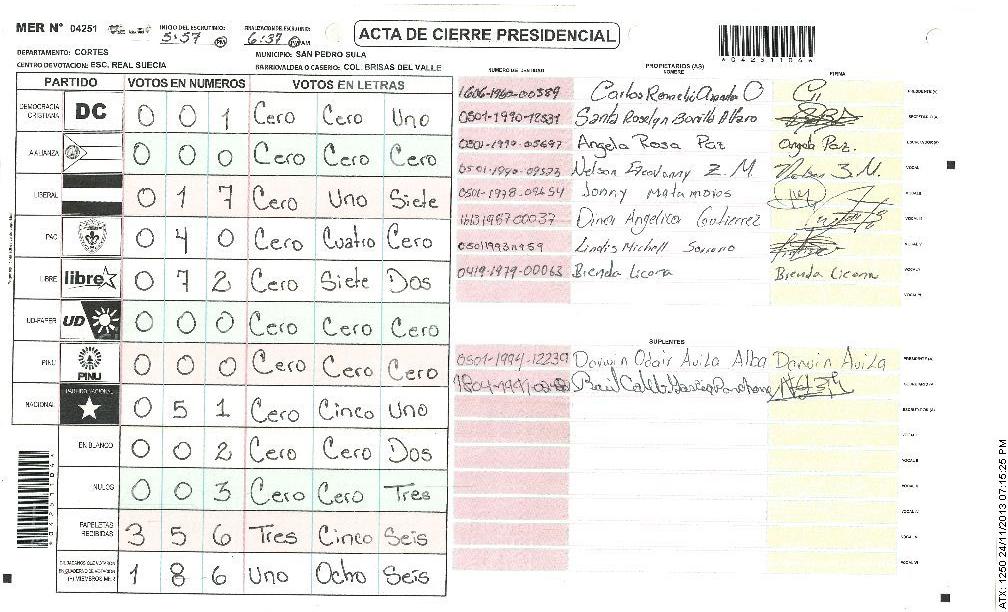 MER Nº 04251 INICIO DEL ESCRUTINIO: 5:57 PM FINALIZACION DE ESCRUTINIO: 6:37 PM/AM ACTA DE CIERRE PRESIDENCIAL
DEPARTAMENTO: CORTES MUNICIPIO: SAN PEDRO SULA
CENTRO DE VOTACION: ESC. REAL SUECIA BARRIO/ALDEA O CASERIO: COL. BRISAS DEL VALLE
PARTIDO VOTOS EN NUMEROS VOTOS EN LETRAS
DEMOCRACIA CRISTIANA DC 0 0 1 Cero Cero Uno
0 0 0 Cero Cero Cero
LIBERAL 0 1 7 Cero Uno Siete
PAC 0 4 0 Cero Cuatro Cero
LIBRE libre 0 7 2 Cero Siete Dos
UD-FAPER UD 0 0 0 Cero Cero Cero
PINU PINU 0 0 0 Cero Cero Cero
NACIONAL PARTIDO NACIONAL 0 5 1 Cero Cinco Uno
EN BLANCO 0 0 2 Cero Cero Dos
NULOS 0 0 3 Cero Cero Tres
PAPELETAS RECIBIDAS 3 5 6 Tres Cinco Seis
1 8 6 Uno Ocho Seis
NUMERO DE IDENTIDAD PROPIETARIOS (AS) NOMBRE FIRMA
1606-1960-00589 Carlos O
0501-1990-12531 Santa Roselyn Bonilla Alfaro
0501-1990-05697 Angela Rosa Paz Angela Paz.
0501-1990-09523 Nelson Z. M. Z.M. VOCAL
0501-1978-09654 Jonny Matamoros
1613195700037 Angelica Gutierrez
Michell Serrano
0419-1979-00063 Brenda Licona Brenda Licona
SUPLENTES
0501-1994-12239 Darwin Odair Avila Alba Darwin Avila
ATX: 1250 24/11/2013 07:15:25 PM